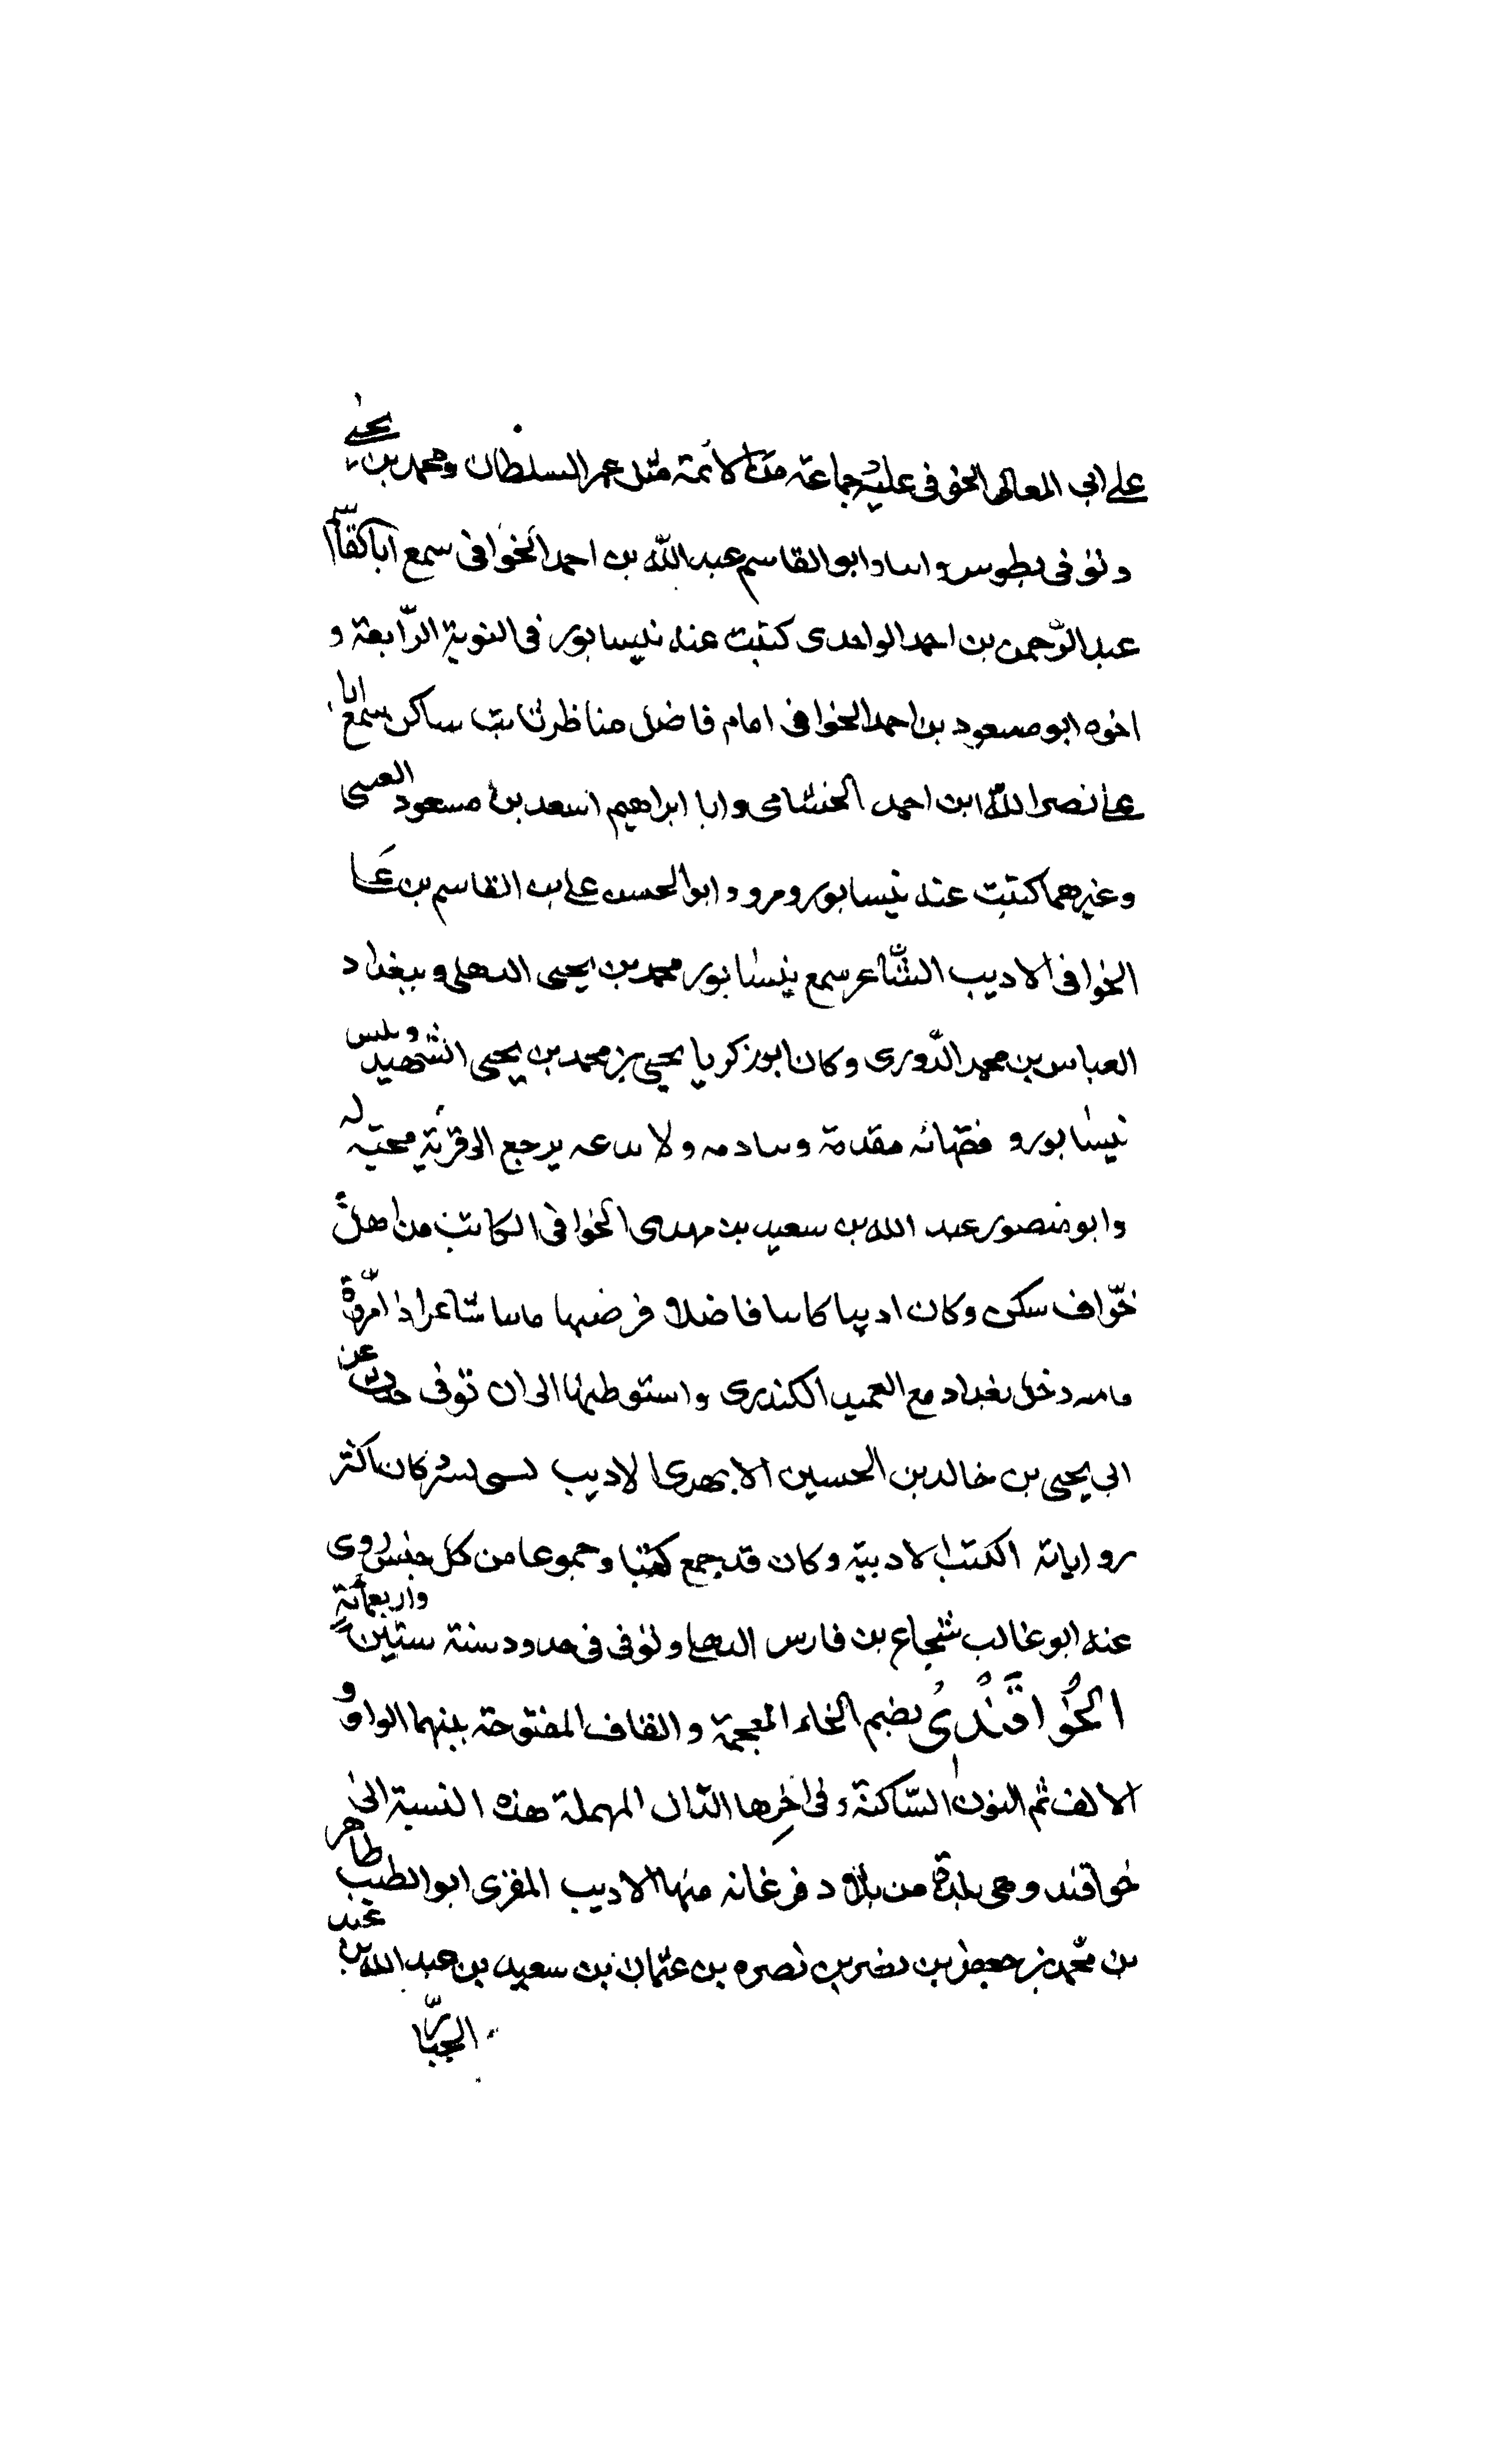 على ابى المعالى الخوافى عليه جماعة من الائمة مثل عمر السلطان ومحمد بن يحيى
وتوفى بطوس وابو القاسم عبد الله بن احمد الخوافى سمع ابا القاسم
عبد الرّحمن بن احمد الواحدى كتبت عنه نيسابور فى النوبة الرّابعة و
اخوه ابو مسعود بن احمد الخوافى امام فاضل مناظر ساكن سمع ابا
على نصر الله ابن احمد الخشنامى وابا ابراهيم اسعد بن مسعود العتبى
وغيرهما كتبت عنه نيسابور ومرو وابو الحسن على بن القاسم بن على
الخوافى الاديب الشّاعر سمع نيسابور محمد بن يحيى الدهلى وببغداد
العباس بن محمد الدّورى وكان ابو زكريا يحيى بن محمد بن يحيى الشهيد
نيسابور و فقهائه مقدمة ولا يدعه يرجع الى قرية محبّة له
وابو منصور عبد الله بن سعيد بن مهدى الخوافى الكاتب من اهل
خوّاف سكن وكان اديبا كاتبا فاضلا فرضيها شاعرا ذا مروّة
دخل بغداد مع العميد الكندرى واستوطنها الى ان توفى حدث عن
ابى يحيى بن خالد بن الحسين الابهرى الاديب كان اكثر
رواياته الكتب الادبيّة وكان قد جمع كتبا وجموعا من كل جنس روى
عنه ابو غالب شجاع بن فارس الدهلى وتوفى فى حدود سنة ستين واربعمائة
الخُواقَنْدِىُ بضم الخاء المعجمة والقاف المفتوحة بينهما الواو و
الالف ثم النون السّاكنة وفى اخِرها الدّال المهملة هذه النسبة الى
خواقند وهى بلدة من بلاد فرغانه منها الاديب المقرى ابو الطيب طاهر
بن محمد بن جعفر بن نصر بن نصره بن عثمان بن سعيد بن عبد الله بن عبد
الجبّار